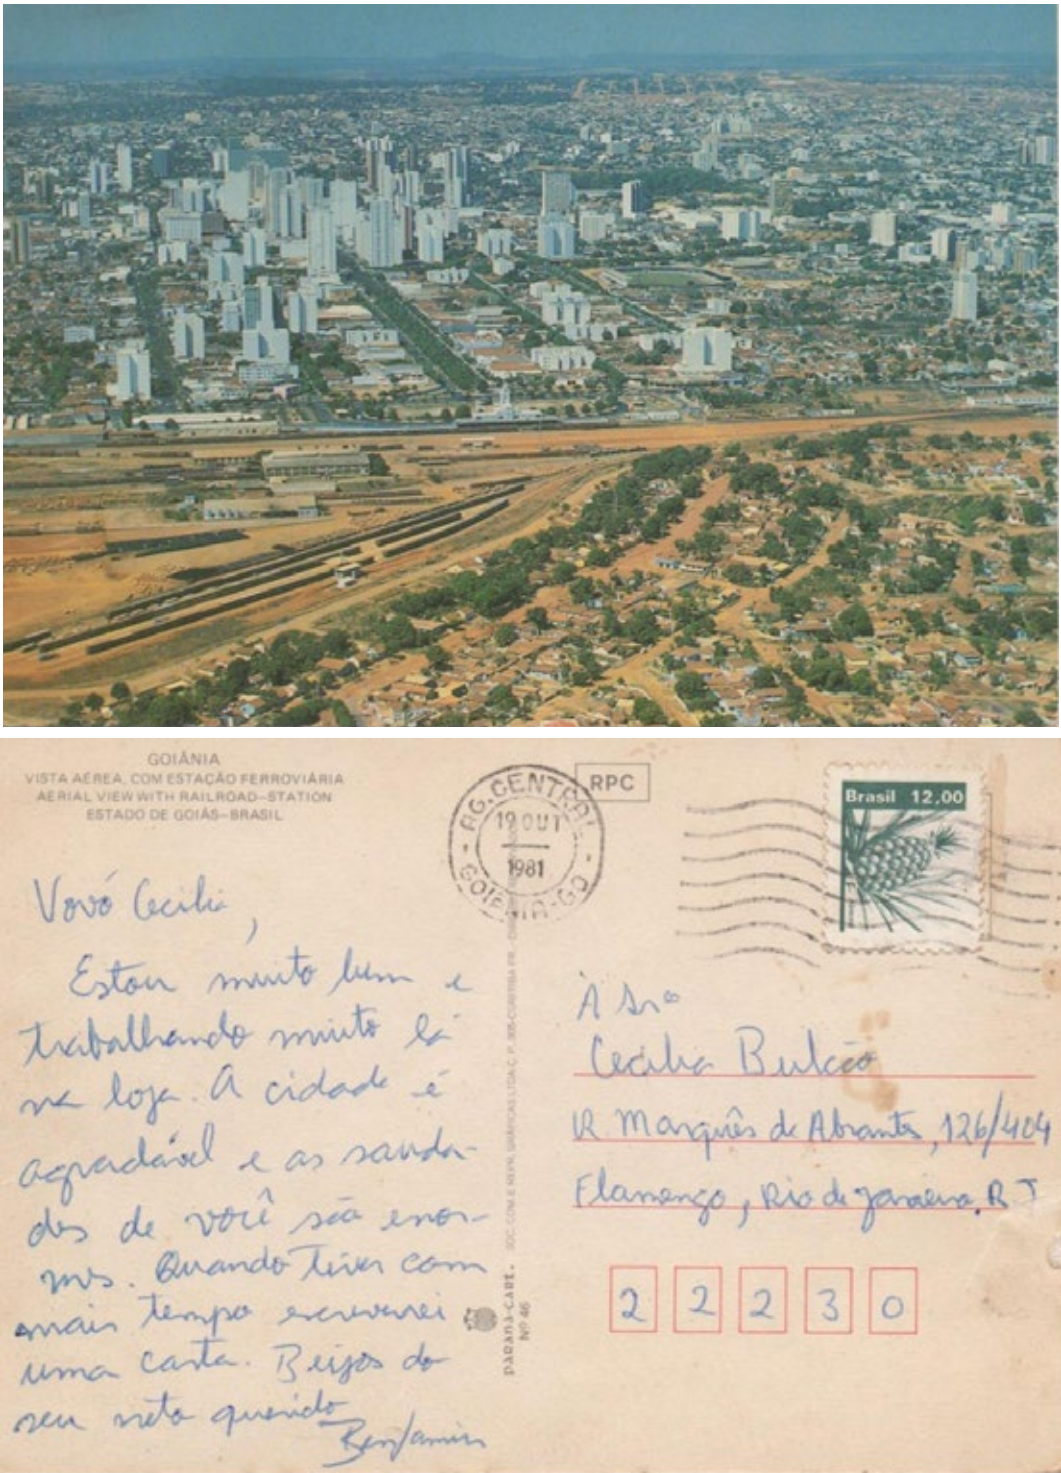 GOIÂNIA
VISTA AÉREA, COM ESTAÇÃO FERROVIÁRIA
AERIAL VIEW WITH RAILROAD-STATION
ESTADO DE GOIÁS-BRASIL
AG. CENTRAL
19 OUT
1981
GOIÂNIA-GO
RPC
Brasil 12,00
Vovó Cecilia,
Estou muito bem e
trabalhando muito lá
na loja. A cidade é
agradável e as sauda-
des de você são enor-
mes. Quando tiver com
mais tempo escreverei
uma carta. Beijos do
seu neto querido
Benjamin
PARANÁ-CART.
Nº 46
À Sra
Cecilia Bulcão
R. Marquês de Abrantes, 126/404
Flamengo, Rio de Janeiro, RJ
22230